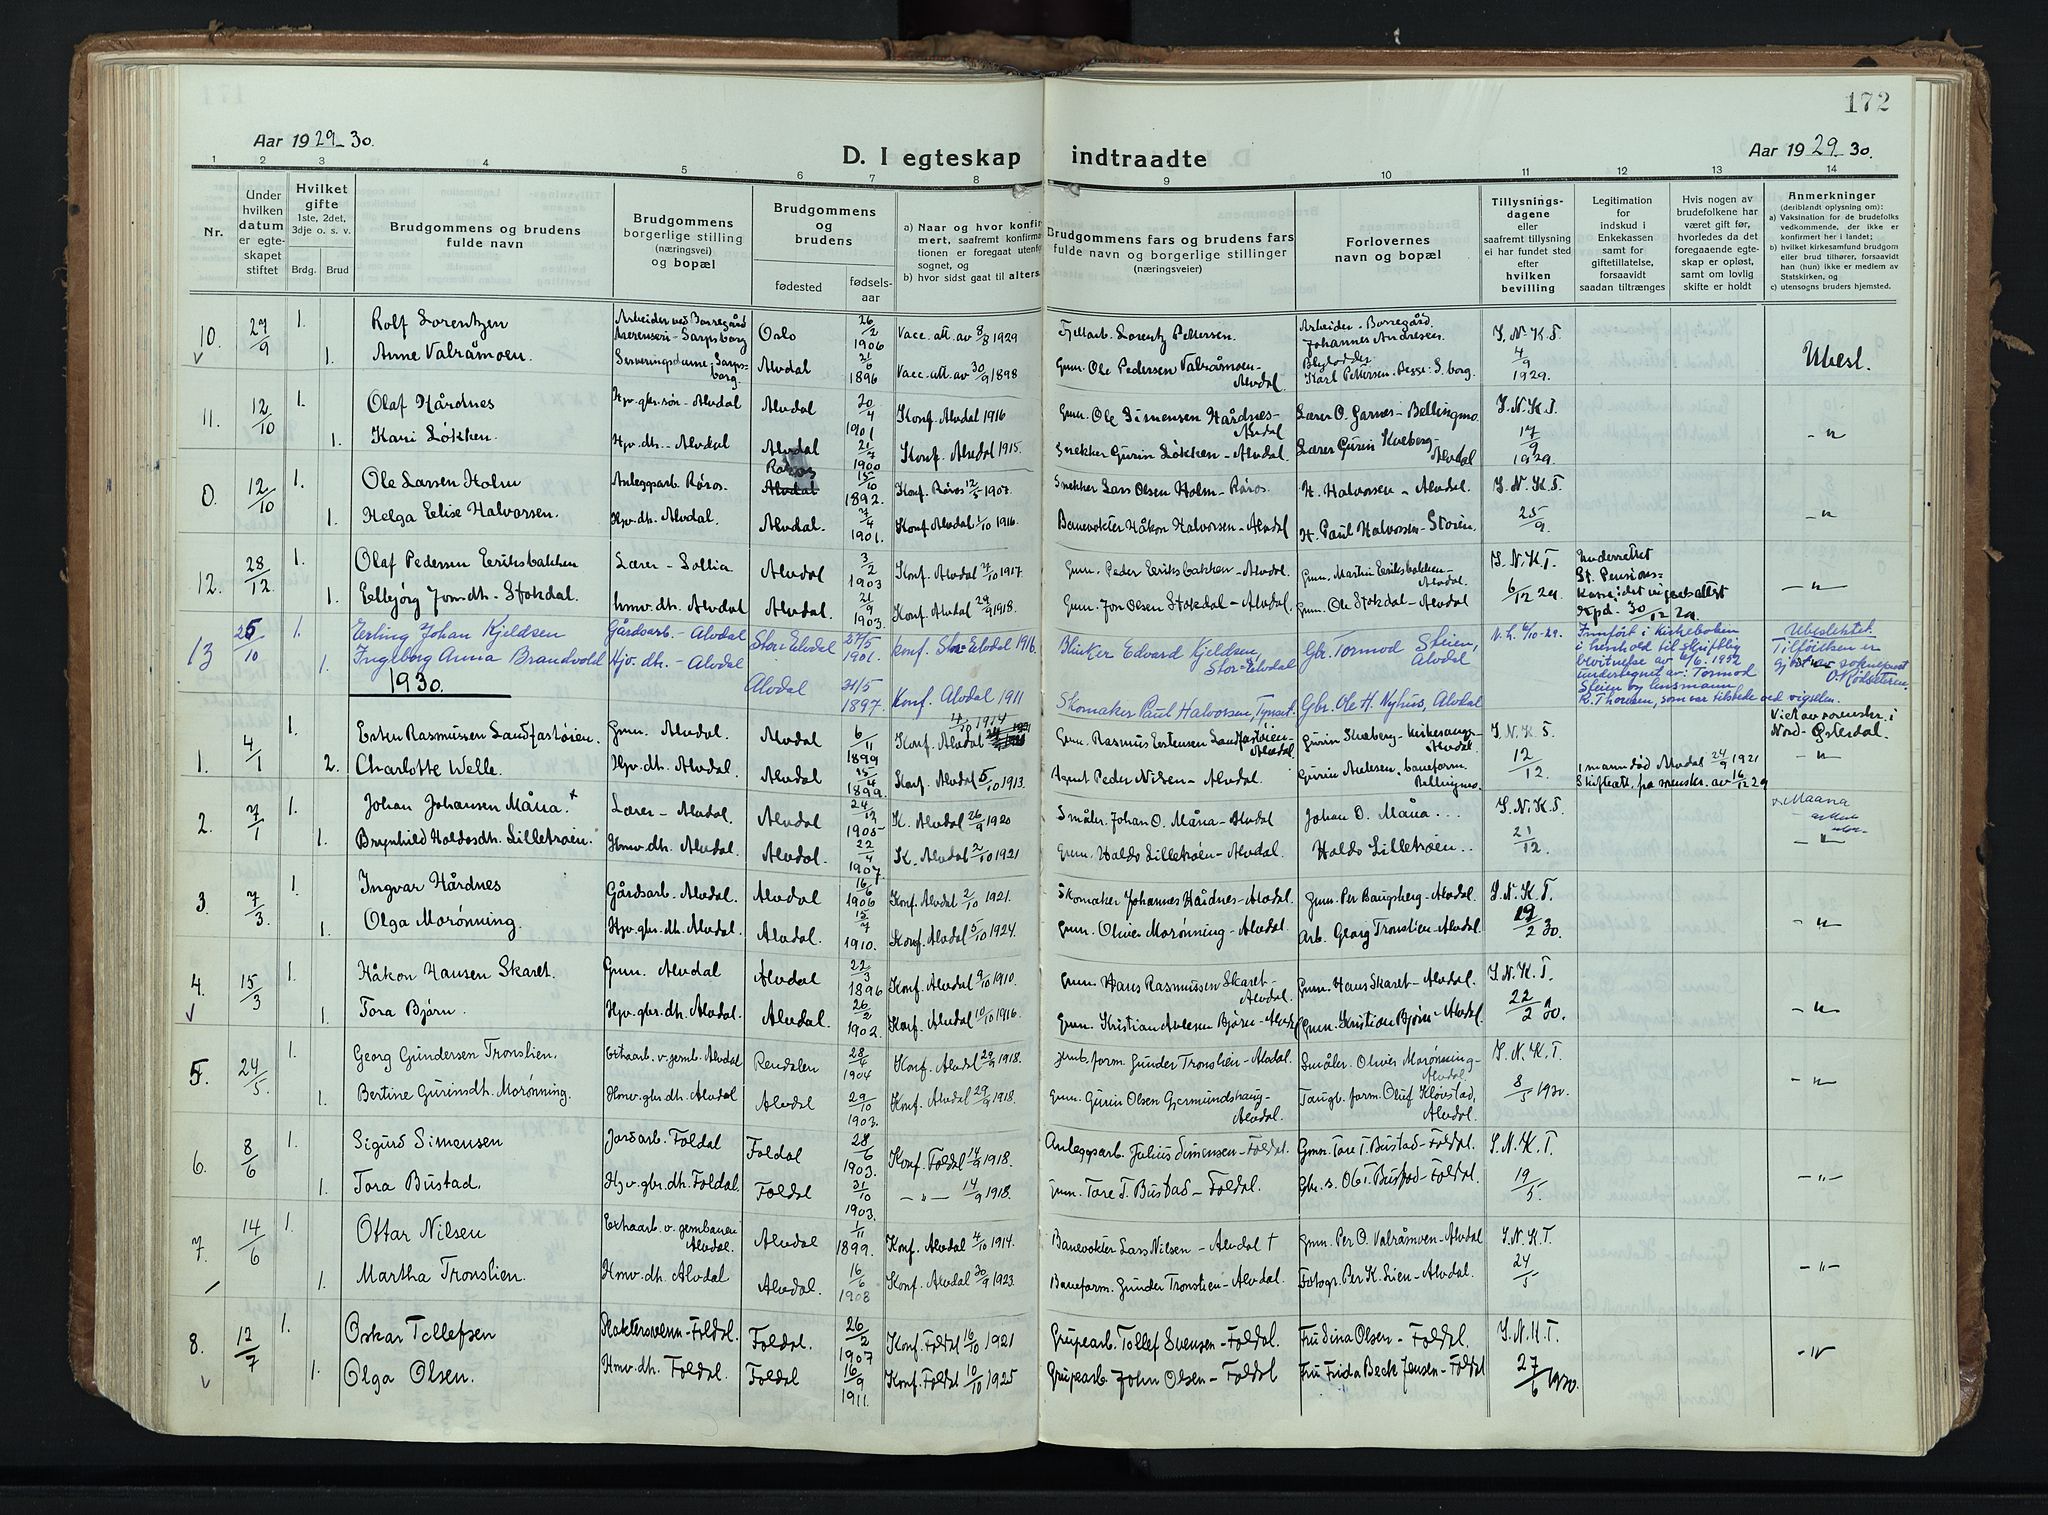 172
Aar 1929-30.
D. I egteskap indtraadte
Aar 1929-30.
1 2 3 4 5 6 7 8 9 10 11 12 13 14
Nr.
Under hvilken datum er egteskapet stiftet
Hvilket gifte
1ste, 2det, 3dje o. s. v.
Brdg. Brud
Brudgommens og brudens fulde navn
Brudgommens borgerlige stilling (næringsvei) og bopæl
Brudgommens og brudens
fødested fødselsaar
a) Naar og hvor konfirmert, saafremt konfirmationen er foregaat utenfor sognet, og
b) hvor sidst gaat til alters.
Brudgommens fars og brudens fars fulde navn og borgerlige stillinger (næringsveier)
Forlovernes navn og bopæl
Tillysningsdagene eller saafremt tillysning ei har fundet sted efter hvilken bevilling
Legitimation for indskud i Enkekassen samt for giftetillatelse, forsaavidt saadan tiltrænges
Hvis nogen av brudefolkene har været gift før, hvorledes da det foregaaende egteskap er opløst, samt om lovlig skifte er holdt
Anmerkninger
(deriblandt oplysning om):
a) Vaksination for de brudefolks vedkommende, der ikke er konfirmert her i landet;
b) hvilket kirkesamfund brudgom eller brud tilhører, forsaavidt han (hun) ikke er medlem av Statskirken, og
c) utensogns bruders hjemsted.
10. 27/9 1. Rolf Lorentzen Arbeider ved Borregård Sarpsborg Oslo 26/2 1906 Vacc. att. av 8/8 1929 Fjellarb. Lorentz Pettersen. Arbeider - Borregård Johannes Andresen S. N. K. T. 4/9 1929. Ubesl.
1. Anne Valråmoen. Serveringsdame, Sarpsborg. Alvdal 21/6 1896 Vacc. att. av 30/9 1898 Gmn. Ole Pedersen Valråmoen - Alvdal Karl Pettersen
11. 12/10 1. Olaf Hårdnes Hjv. gbr. søn - Alvdal Alvdal 20/4 1901 Konf. Alvdal 1916 Gmn. Ole Simensen Hårdnes - Alvdal Lærer O. Garnes - Bellingmo. S. N. K. T. 17/9 1929. - " -
1. Kari Løkken. Hjv. dh. - Alvdal Alvdal 21/7 1900 Konf. Alvdal 1915. Snekker Gurin Løkken - Alvdal. Lærer Gurin Kveberg - Alvdal
0. 12/10 1. Ole Larsen Holm Anleggsarb. Røros. Røros Alvdal 15/10 1892. Konf. Røros 12/5 1907. Snekker Lars Olsen Holm - Røros. H. Halvorsen - Alvdal. S. N. K. T. 25/9. - " -
1. Helga Elise Halvorsen. Hjv. dh. Alvdal. Alvdal. 7/4 1901. Konf. Alvdal 1/10 1916. Banevokter Håkon Halvorsen - Alvdal H. Paul Halvorsen - Støren
12. 28/12 1. Olaf Pedersen Eriksbakken Lærer - Sollia Alvdal 3/2 1903 Konf. Alvdal 7/10 1917. Gmn. Peder Eriksbakken - Alvdal. Gmn. Martin Eriksbakken - Alvdal S. N. K. T. 6/12 29. Underrettet St. Pensionskasse: det vigselsattest expd. 30/12 29. - " -
1. Ellbjørg Jonsdh. Stokdal. hmv. dh. Alvdal Alvdal 21/9 1903. Konf. Alvdal 29/9 1918. Gmn. Jon Olsen Stokdal - Alvdal. Gmn. Ole Stokdal - Alvdal
13 25/10 1. Erling Johan Kjeldsen Gårdsarb. - Alvdal Stor-Elvdal 27/5 1901. Konf. Stor-Elvdal 1916. Blikker Edvard Kjeldsen, Stor-Elvdal Gbr. Tormod Steien, Alvdal N. L. 6/10-29. Innført i kirkeboken i henhold til skriftlig bevitnelse av 6/6. 1932 undertegnet av: Tormod Steien og lensmann R. Thoresen, som var tilstede ved vigselen. Ubeslektet. Tilføielsen er gjort av sokneprest O. Rødseteren.
1. Ingeborg Anna Brandvold Hjv. dh. - Alvdal Alvdal 21/5 1897. Konf. Alvdal 1911 Skomaker Paul Halvorsen, Tynset. Gbr. Ole H. Nyhus, Alvdal
1930.
1. 4/1 1. Esten Rasmussen Sandfastøien. Gmn. Alvdal. Alvdal 6/11 1899 Konf. Alvdal 4/10 1914 Gmn. Rasmus Estensen Sandfastøien - Alvdal Gurin Kveberg - Alvdal S. N. K. T. 12/12. Viet av sorenskr. i Nord-Østerdal.
2. Charlotte Welle. Hjv. dh. Alvdal. Alvdal 15/4 1899. Konf. Alvdal 5/10 1913. Agent Peder Nilsen - Alvdal. Gurin Bellingmo. 1 mann død Alvdal 24/9 1921 Skifteatt. fra sorenskr. av 16/12 29 - " -
2. 7/1 1. Johan Johansen Måna + Lærer - Alvdal Alvdal 24/12 1905 K. Alvdal 26/9 1920 Småbr. Johan O. Måna - Alvdal Johan O. Måna ... S. N. K. T. 21/12. Maana
1. Brynhild Haldosdh. Lilletrøen. Hmv. dh. Alvdal. Alvdal. 22/4 1907. K. Alvdal 2/10 1921 Gmn. Haldo Lilletrøen - Alvdal. Haldo Lilletrøen.. - " -
3. 7/3 1. Ingvar Hårdnes Gårdsarb. Alvdal. Alvdal 16/6 1906 Konf. Alvdal 2/10 1921. Skomaker Johannes Hårdnes - Alvdal. Gmn. Per Baugsberg - Alvdal. S. N. K. T. 19/2 30. - " -
1. Olga Morønning. Hjv. gbr. dh. Alvdal. Alvdal. 15/7 1910. Konf. Alvdal 5/10 1924. Gmn. Oliver Morønning - Alvdal. Arb. Georg Tronslien - Alvdal.
4. 15/3 1. Håkon Hansen Skaret. Gmn. Alvdal Alvdal 22/3 1896 Konf. Alvdal 9/10 1910. Gmn. Hans Rasmussen Skaret - Alvdal. Gmn. Hans Skaret - Alvdal. S. N. K. T. 22/2 30. - " -
1. Tora Bjørn. Hjv. gbr. dh. Alvdal. Alvdal. 26/2 1902. Konf. Alvdal 10/10 1916. Gmn. Kristian Bjørn - Alvdal Gmn. Kristian Bjørn - Alvdal
5. 24/5 1. Georg Gundersen Tronslien. Extraarb. v. jernb. Alvdal Rendalen 28/4 1904 Konf. Alvdal 29/9 1918. Jernb. form. Gunder Tronslien - Alvdal. Småbr. Oliver Morønning - Alvdal S. N. K. T. 8/5 1930. - " -
1. Bertine Gurinsdh. Morønning. Hmv. gbr. dh. Alvdal Alvdal 29/10 1903. Konf. Alvdal 29/9 1918. Gmn. Gurin Olsen Gjermundshaug - Alvdal. Taugb. form. Oluf Kløvstad, Alvdal.
6. 8/6 1. Sigurd Simensen Jordarb. Folldal Folldal 28/6 1903. Konf. Folldal 14/9 1918. Anleggsarb. Julius Simensen - Folldal. Gmn. Tore T. Bustad - Folldal. S. N. K. T. 19/5. - " -
1. Tora Bustad. Hjv. gbr. dh. Folldal. Folldal. 31/10 1903. - " - 14/9 1918. Gmn. Tore T. Bustad - Folldal. Gbr. s. Ola T. Bustad - Folldal.
7. 14/6 1. Ottar Nilsen Extraarb. v. jernbanen Alvdal. Alvdal 1/11 1899. Konf. Alvdal 4/10 1914. Banevokter Lars Nilsen - Alvdal + Gmn. Per O. Valråmoen - Alvdal S. N. K. T. 24/5 - " -
1. Martha Tronslien. Hmv. dh. Alvdal Alvdal. 16/6 1908 Konf. Alvdal 30/9 1923. Baneform. Gunder Tronslien - Alvdal. Fotogr. Per K. Lien - Alvdal.
8. 12/7 1. Oskar Tollefsen Folldal. Folldal. 26/2 1907 Konf. Folldal 16/10 1921 Grubearb. Tollef Svensen - Folldal. Fru Dina Olsen - Folldal. S. N. K. T. 27/6 1930. - " -
1. Olga Olsen. Hmv. dh. Folldal. Folldal 16/9 1911. Konf. Folldal 10/10 1925 Grubearb. John Olsen - Folldal Fru Frida Beck Jensen - Folldal